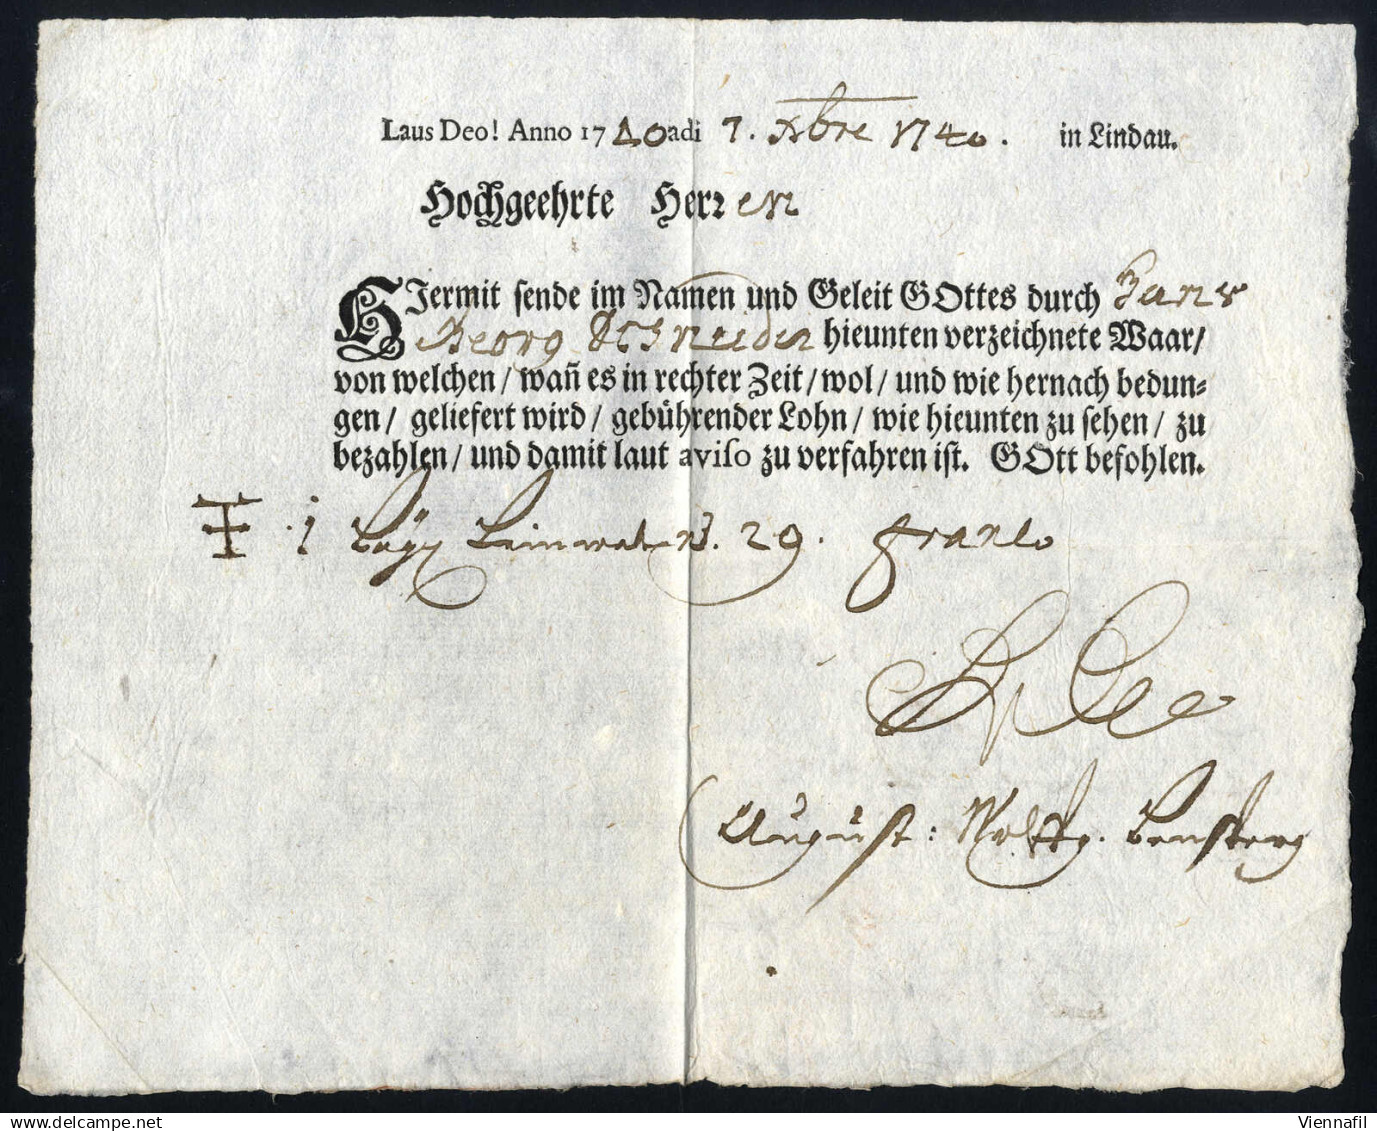 Laus Deo! Anno 1740 adi 7. Xbre 1740. in Lindau.
Hochgeehrte Herren
HJermit sende im Namen und Geleit GOttes durch Hans
Georg Schneider hieunten verzeichnete Waar/
von welchen / wañ es in rechter Zeit / wol / und wie hernach bedun-
gen / geliefert wird / gebührender Lohn / wie hieunten zu sehen / zu
bezahlen / und damit laut aviso zu verfahren ist. GOtt befohlen.
1 Leinwat N. 29. franco
August: Wolffg.
Viennafil